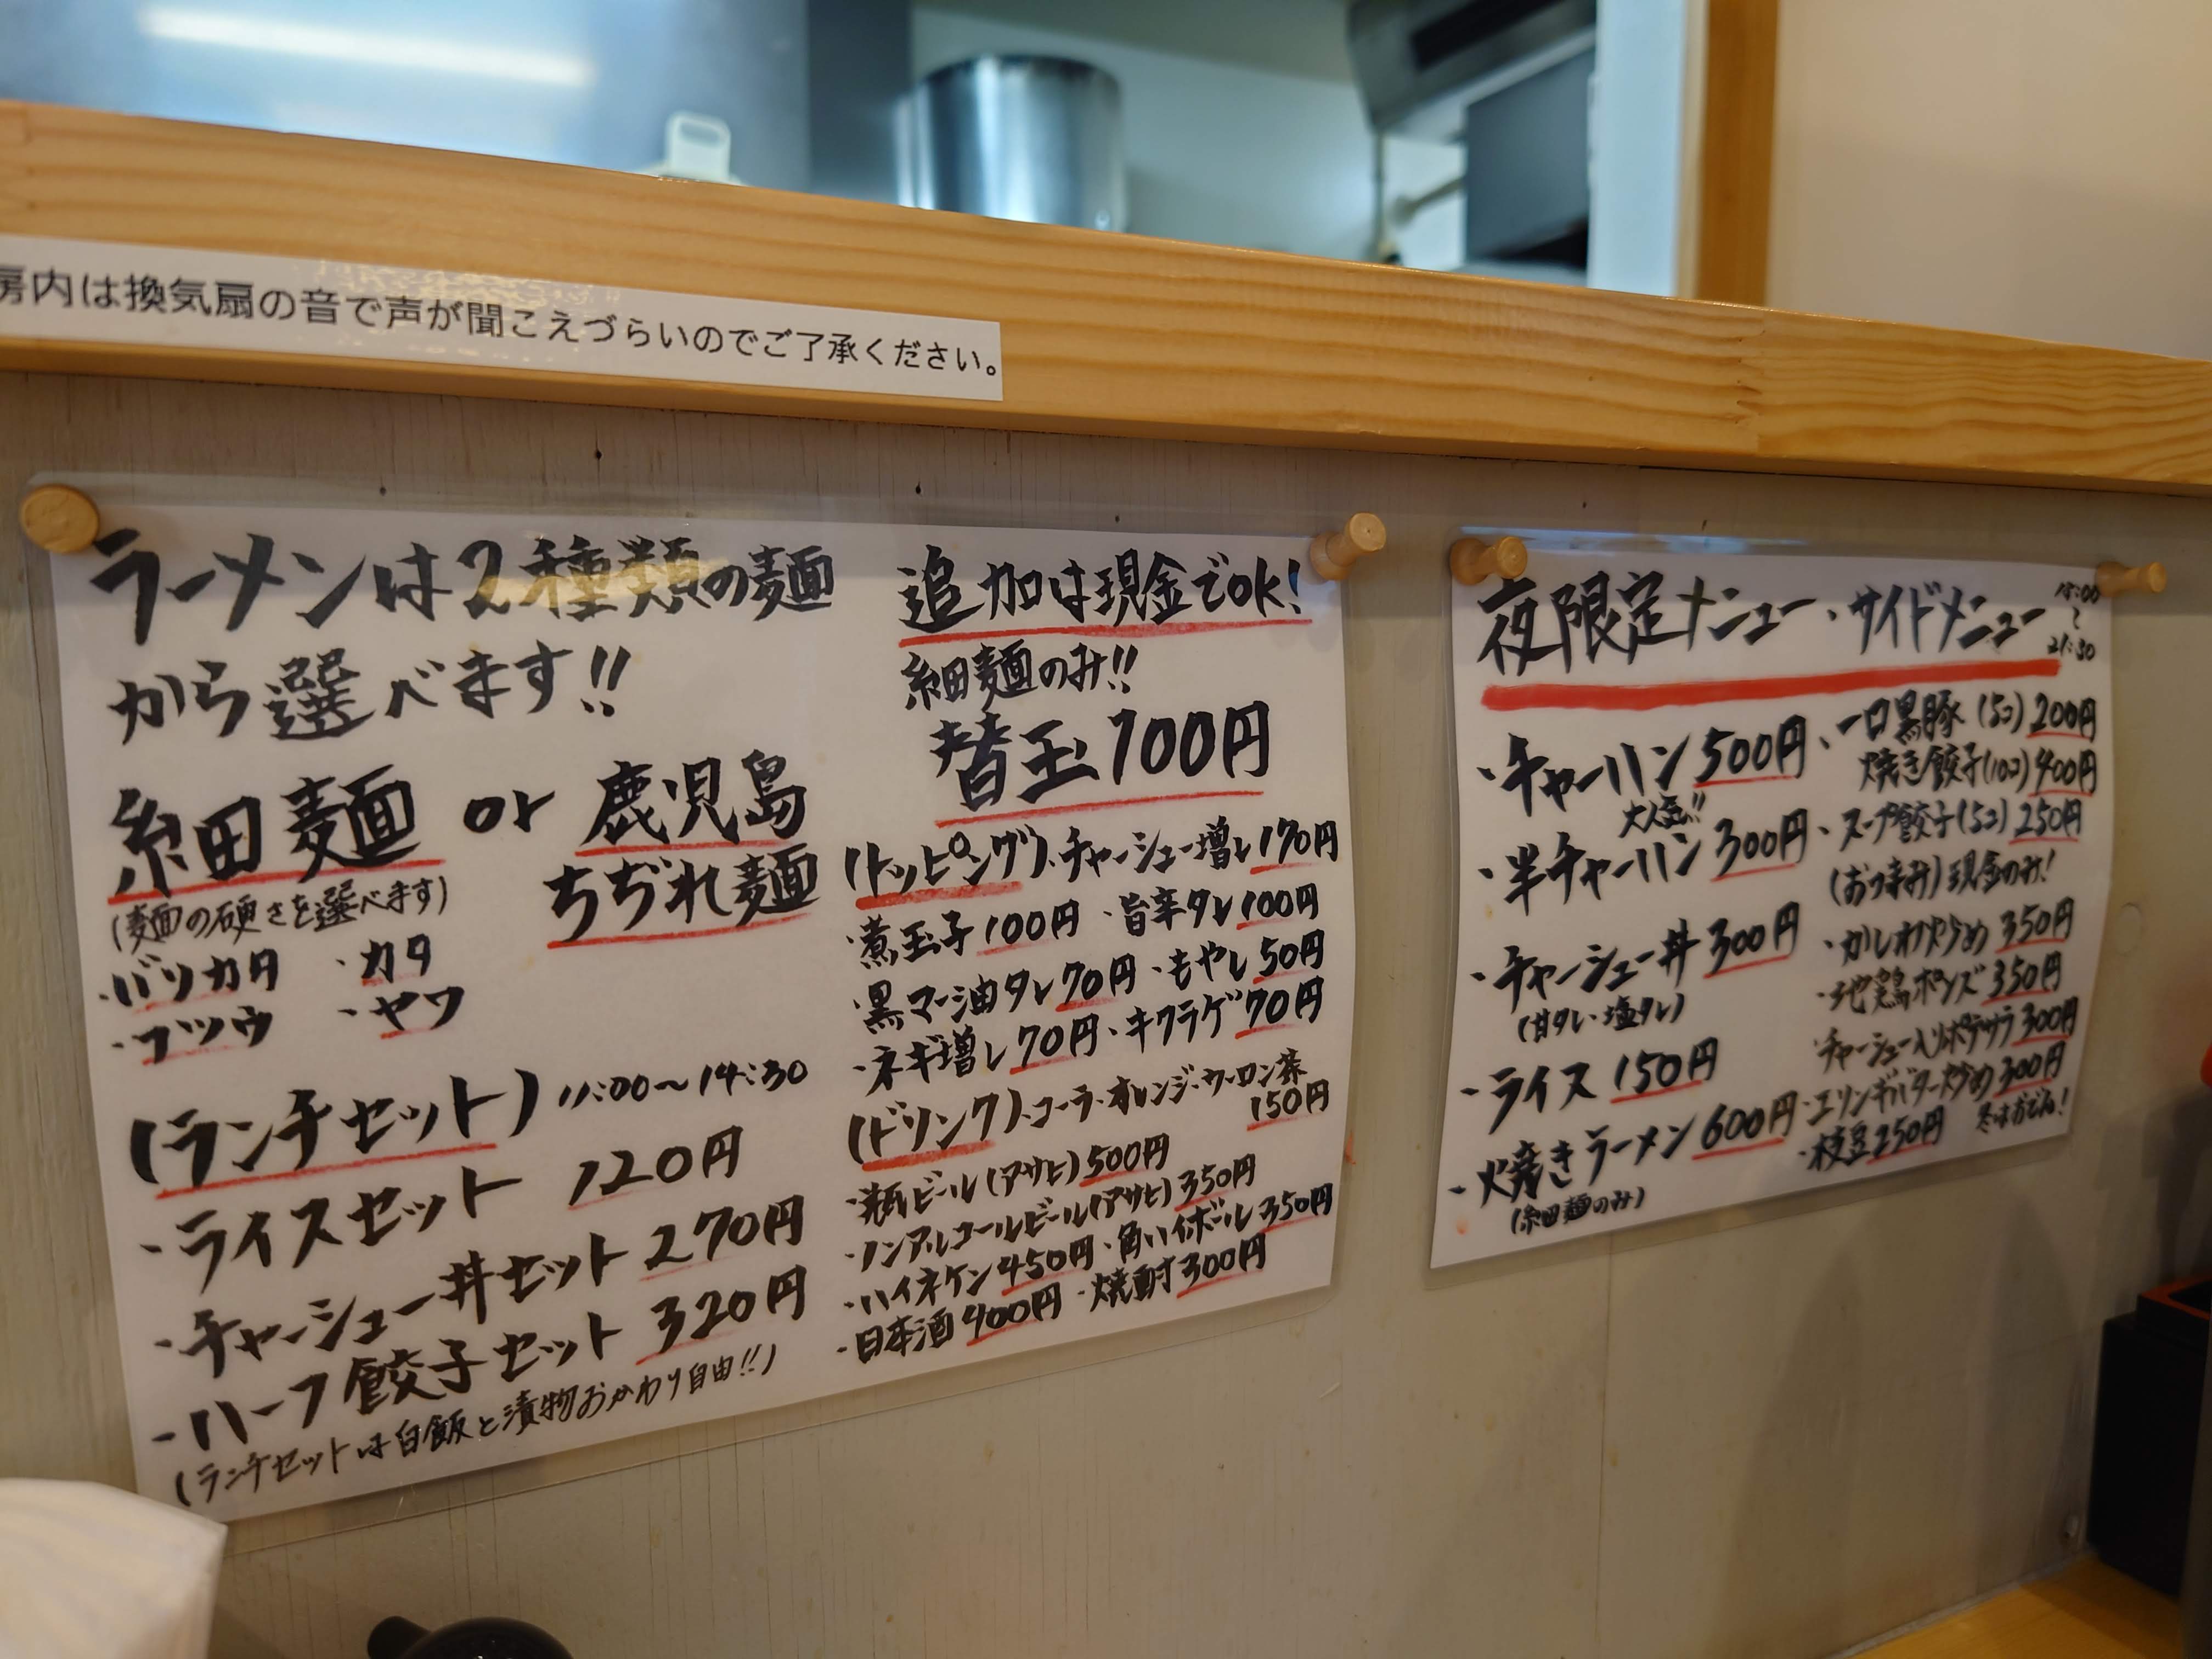 房内は換気扇の音で声が聞こえづらいのでご了承ください。
ラーメンは2種類の麺
から選べます!!
細麺 or 鹿児島
ちぢれ麺
(麺の硬さを選べます)
・バリカタ ・カタ
・フツウ ・ヤワ
(ランチセット) 11:00〜14:30
・ライスセット 120円
・チャーシュー丼セット 270円
・ハーフ餃子セット 320円
(ランチセットは白飯と漬物おかわり自由!!)
追加は現金でOK!
細麺のみ!!
替玉100円
(トッピング)・チャーシュー増し170円
・煮玉子100円 ・旨辛タレ100円
・黒マー油タレ70円・もやし50円
・ネギ増し70円・キクラゲ70円
(ドリンク)・コーラ・オレンジ・ウーロン茶
150円
・瓶ビール(アサヒ)500円
・ノンアルコールビール(アサヒ)350円
・ハイネケン450円・角ハイボール350円
・日本酒400円 ・焼酎300円
夜限定メニュー・サイドメニュー
〜
21:30
・チャーハン500円
大人気!!
・半チャーハン300円
・チャーシュー丼300円
(甘タレ・塩タレ)
・ライス150円
・焼きラーメン600円
(細麺のみ)
・一口黒豚(5コ)200円
焼き餃子(10コ)400円
・スープ餃子(5コ)250円
(おつまみ)現金のみ!
・かしわ炒め350円
・地鶏ポンズ350円
・チャーシュー入りポテサラ300円
・エリンギバター炒め300円
・枝豆250円 冬はおでん!